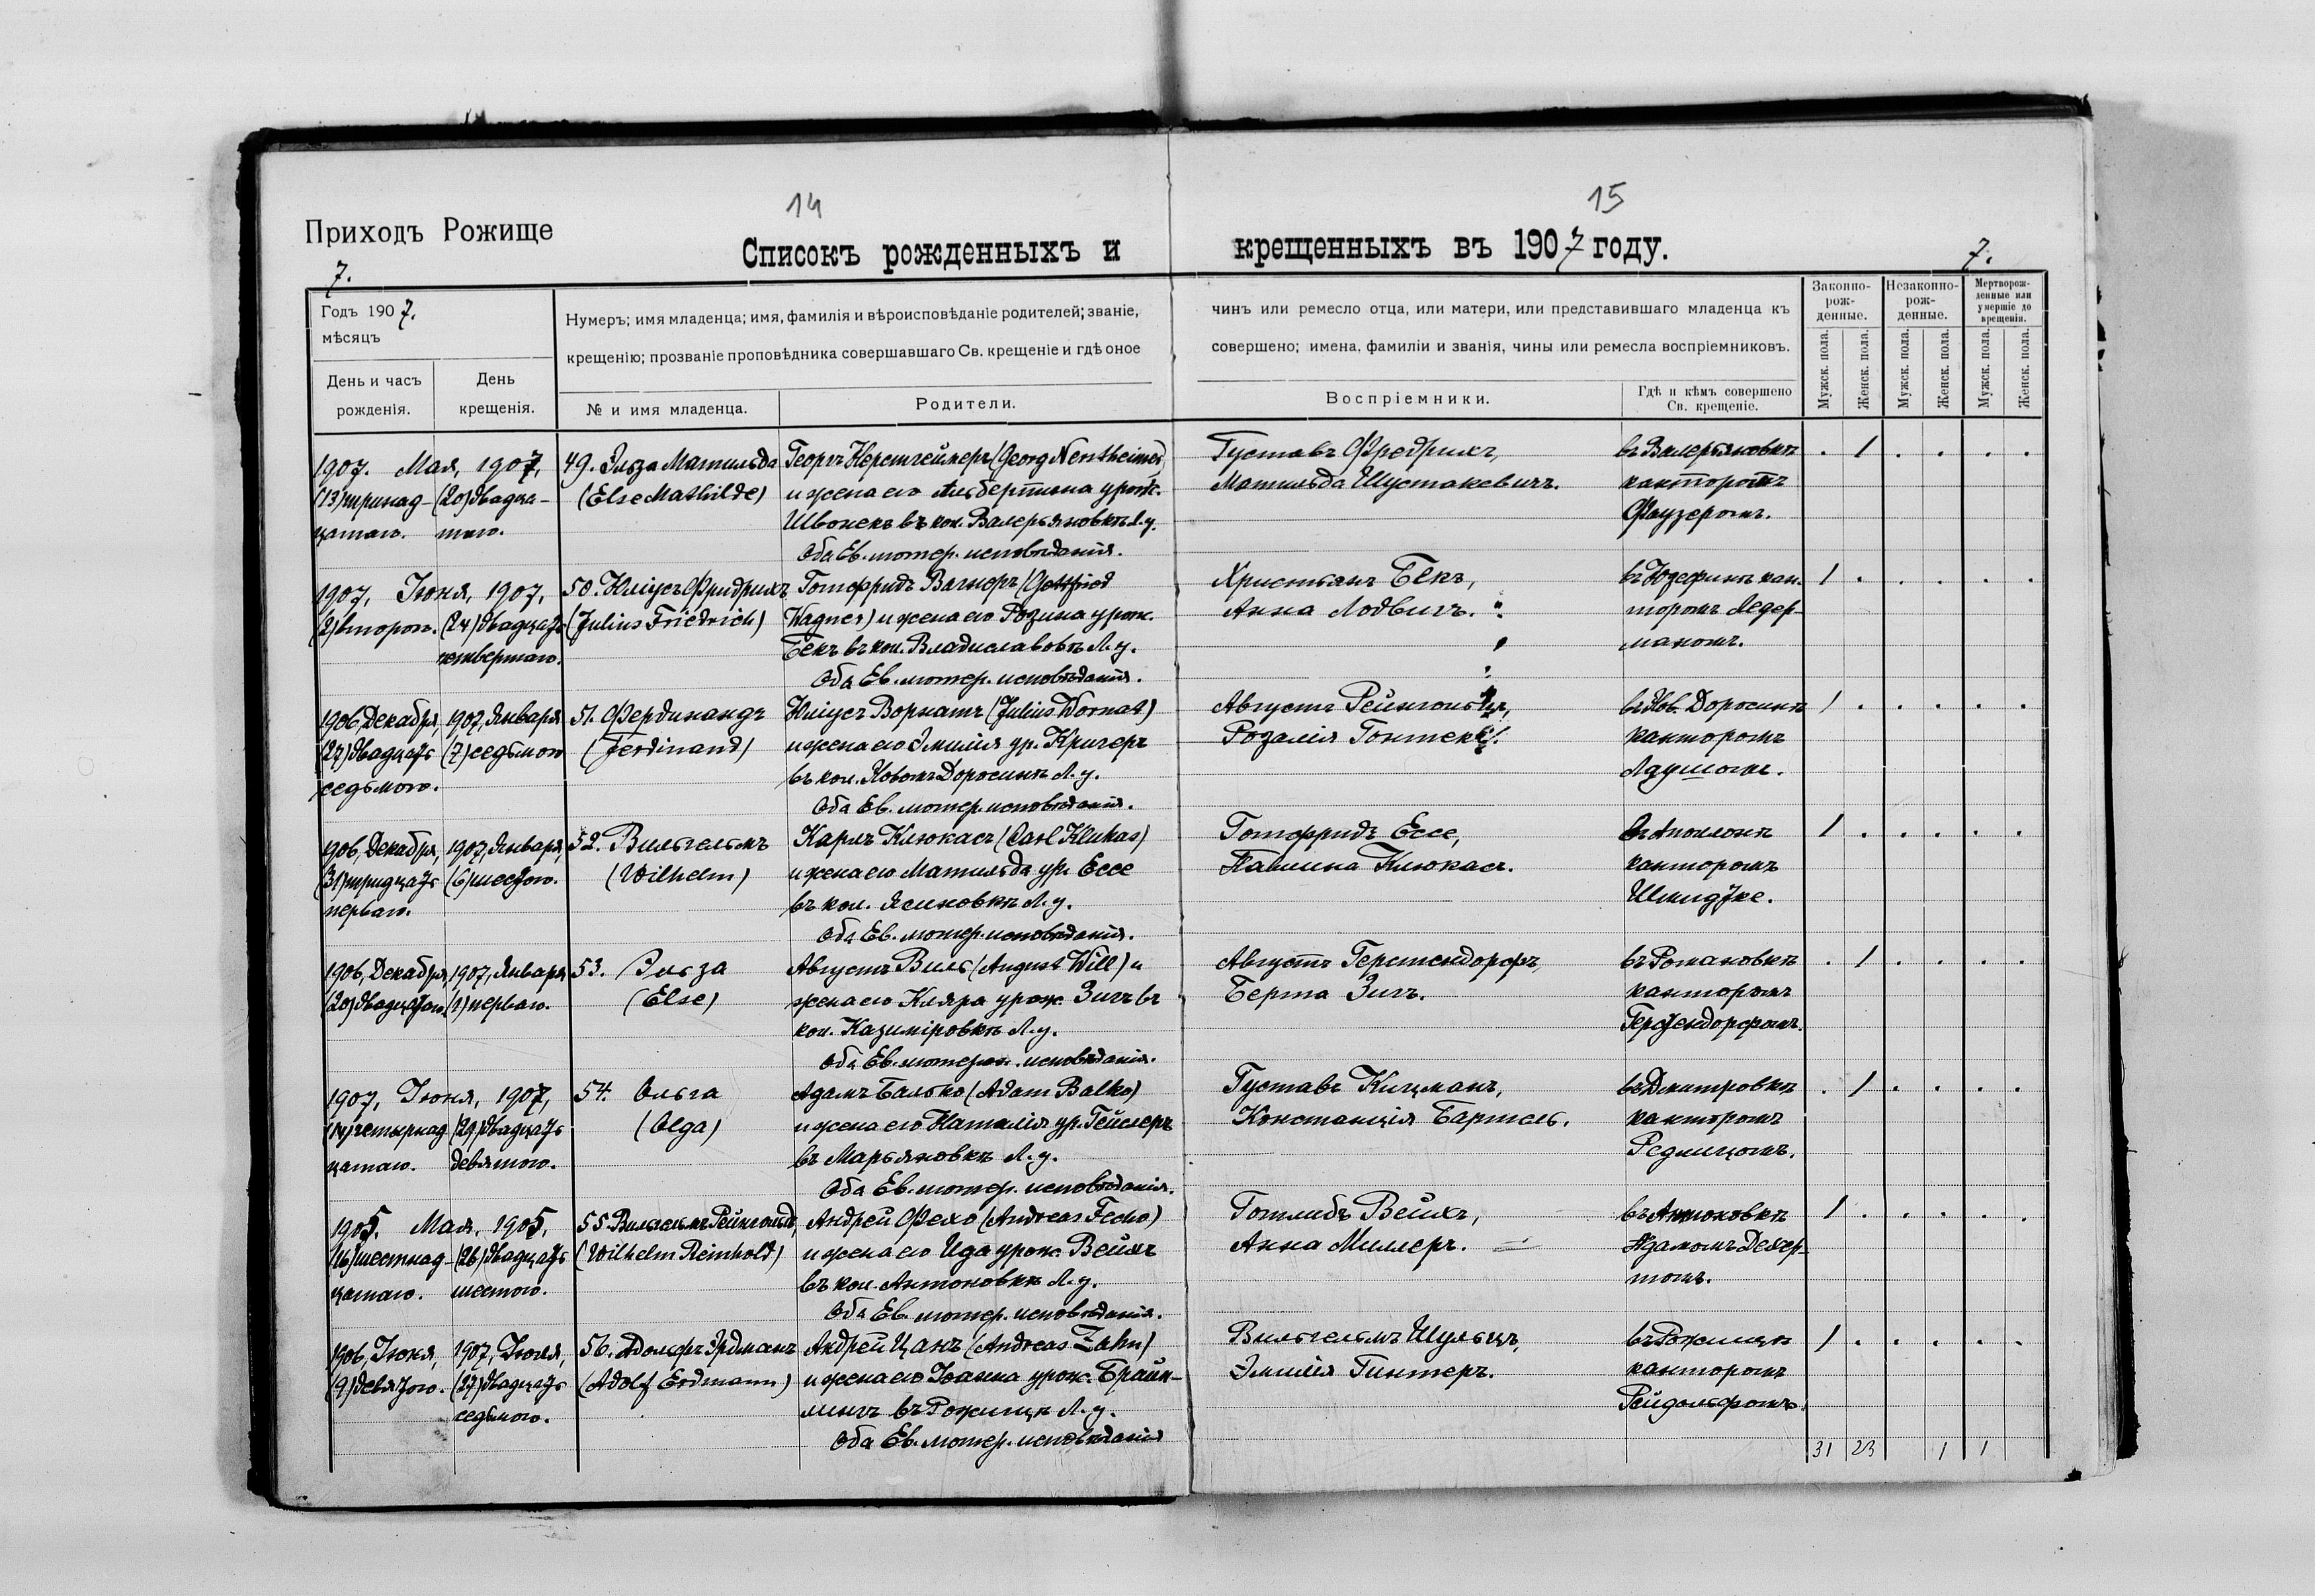 14
15
Приходъ Рожище
Списокъ рожденныхъ и крещенныхъ въ 1907 году.
7.
7.
Годъ 1907.
мѣсяцъ
День и часъ рожденія.
День крещенія.
Нумеръ; имя младенца; имя, фамилія и вѣроисповѣданіе родителей; званіе,
крещенію; прозваніе проповѣдника совершавшаго Св. крещеніе и гдѣ оное
№ и имя младенца.
Родители.
чинъ или ремесло отца, или матери, или представившаго младенца къ
совершено; имена, фамиліи и званія, чины или ремесла воспріемниковъ.
Воспріемники.
Гдѣ и кѣмъ совершено
Св. крещеніе.
Законно-
рож-
денные.
Незаконно-
рож-
денные.
Мертворож-
денные или
умершіе до
крещенія.
Мужск. пола.
Женск. пола.
Мужск. пола.
Женск. пола.
Мужск. пола.
Женск. пола.
1907. Мая, 1907,
(13) тринад- (20) двадца-
цатаго. таго.
49. Эльза Матильда
(Else Mathilde)
Георгъ (Georg
и жена его Альбертина урож.
въ кол. Валерьяновкѣ Л. у.
Оба Ев. лютер. исповѣданія.
Густавъ Фредрихъ,
Матильда Шустакевичъ.
въ Валерьяновкѣ
канторомъ
Фаузеромъ.
. 1 . . . .
1907, Іюня, 1907,
(2) второго. (24) двадцать
четвертаго.
50. Юліусъ Фридрихъ
(Julius Friedrich)
Готфридъ Вагнеръ (Gottfried
Wagner) и жена его Розина урож.
Бекъ въ кол. Владиславовкѣ Л. у.
Оба Ев. лютер. исповѣданія.
Христьянъ Бекъ,
Анна Лодвигъ.
въ Юзефинѣ кан-
торомъ Ледер-
маномъ.
1 . . . . .
1906, Декабря, 1907, Января
(27) двадцать (7) седьмого
седьмого.
51. Фердинандъ
(Ferdinand)
Юліусъ Ворнатъ (Julius Wornat)
и жена его Эмилія ур. Кригеръ
въ кол. Новомъ Доросинѣ Л. у.
Оба Ев. лютер. исповѣданія.
Августъ
Розалія
въ Нов. Доросинѣ
канторомъ
1 . . . . .
1906, Декабря, 1907, Января,
(31) тридцать (6) шестого.
перваго.
52. Вильгельмъ
(Wilhelm)
Карлъ Клюкасъ (Carl Klukas)
и жена его Матильда ур. Ессе
въ кол. Ясиновкѣ Л. у.
Оба Ев. лютер. исповѣданія.
Готфридъ Ессе,
Паулина Клюкасъ.
въ Аполонѣ
канторомъ
Шмидтке.
1 . . . . .
1906, Декабря, 1907, Января
(20) двадцатаго. (1) перваго.
53. Эльза
(Else)
Августъ Виль (August Will) и
жена его Клара урож. Зигъ въ
кол. Казиміровкѣ Л. у.
Оба Ев. лютеран. исповѣданія.
Августъ Герстендорфъ,
Берта Зигъ.
въ Романовкѣ
канторомъ
Герстендорфомъ.
. 1 . . . .
1907, Іюня, 1907,
(14) четырнад- (29) двадцать
цатаго. девятого.
54. Ольга
(Olga)
Адамъ Балько (Adam Balko)
и жена его Наталія ур. Гейслеръ
въ Марьяновкѣ Л. у.
Оба Ев. лютер. исповѣданія.
Густавъ Кицманъ,
Констанція Бартель.
въ Дмитровкѣ
канторомъ
Редлицомъ.
. 1 . . . .
1905, Мая, 1905,
(16) шестнад- (26) двадцать
цатаго. шестого.
55. Вильгельмъ Рейнгольдъ,
(Wilhelm Reinhold)
Андрей Фехо (Andreas Fecho)
и жена его Ида урож. Вейхъ
въ кол. Антоновкѣ Л. у.
Оба Ев. лютер. исповѣданія.
Готлибъ Вейхъ,
Анна Миллеръ.
въ Антоновкѣ
Адамомъ
1 . . . . .
1906, Іюня, 1907, Іюля,
(9) девятого. (27) двадцать
седьмого.
56. Адольфъ Эрдманъ
(Adolf Erdmann)
Андрей Цанъ (Andreas Zahn)
и жена его Іоанна урож. Брайм-
лингъ въ Рожищѣ Л. у.
Оба Ев. лютер. исповѣданія
Вильгельмъ Шульцъ,
Эмилія Гинтеръ.
въ Рожищѣ
канторомъ
1 . . . . .
31 23 1 1